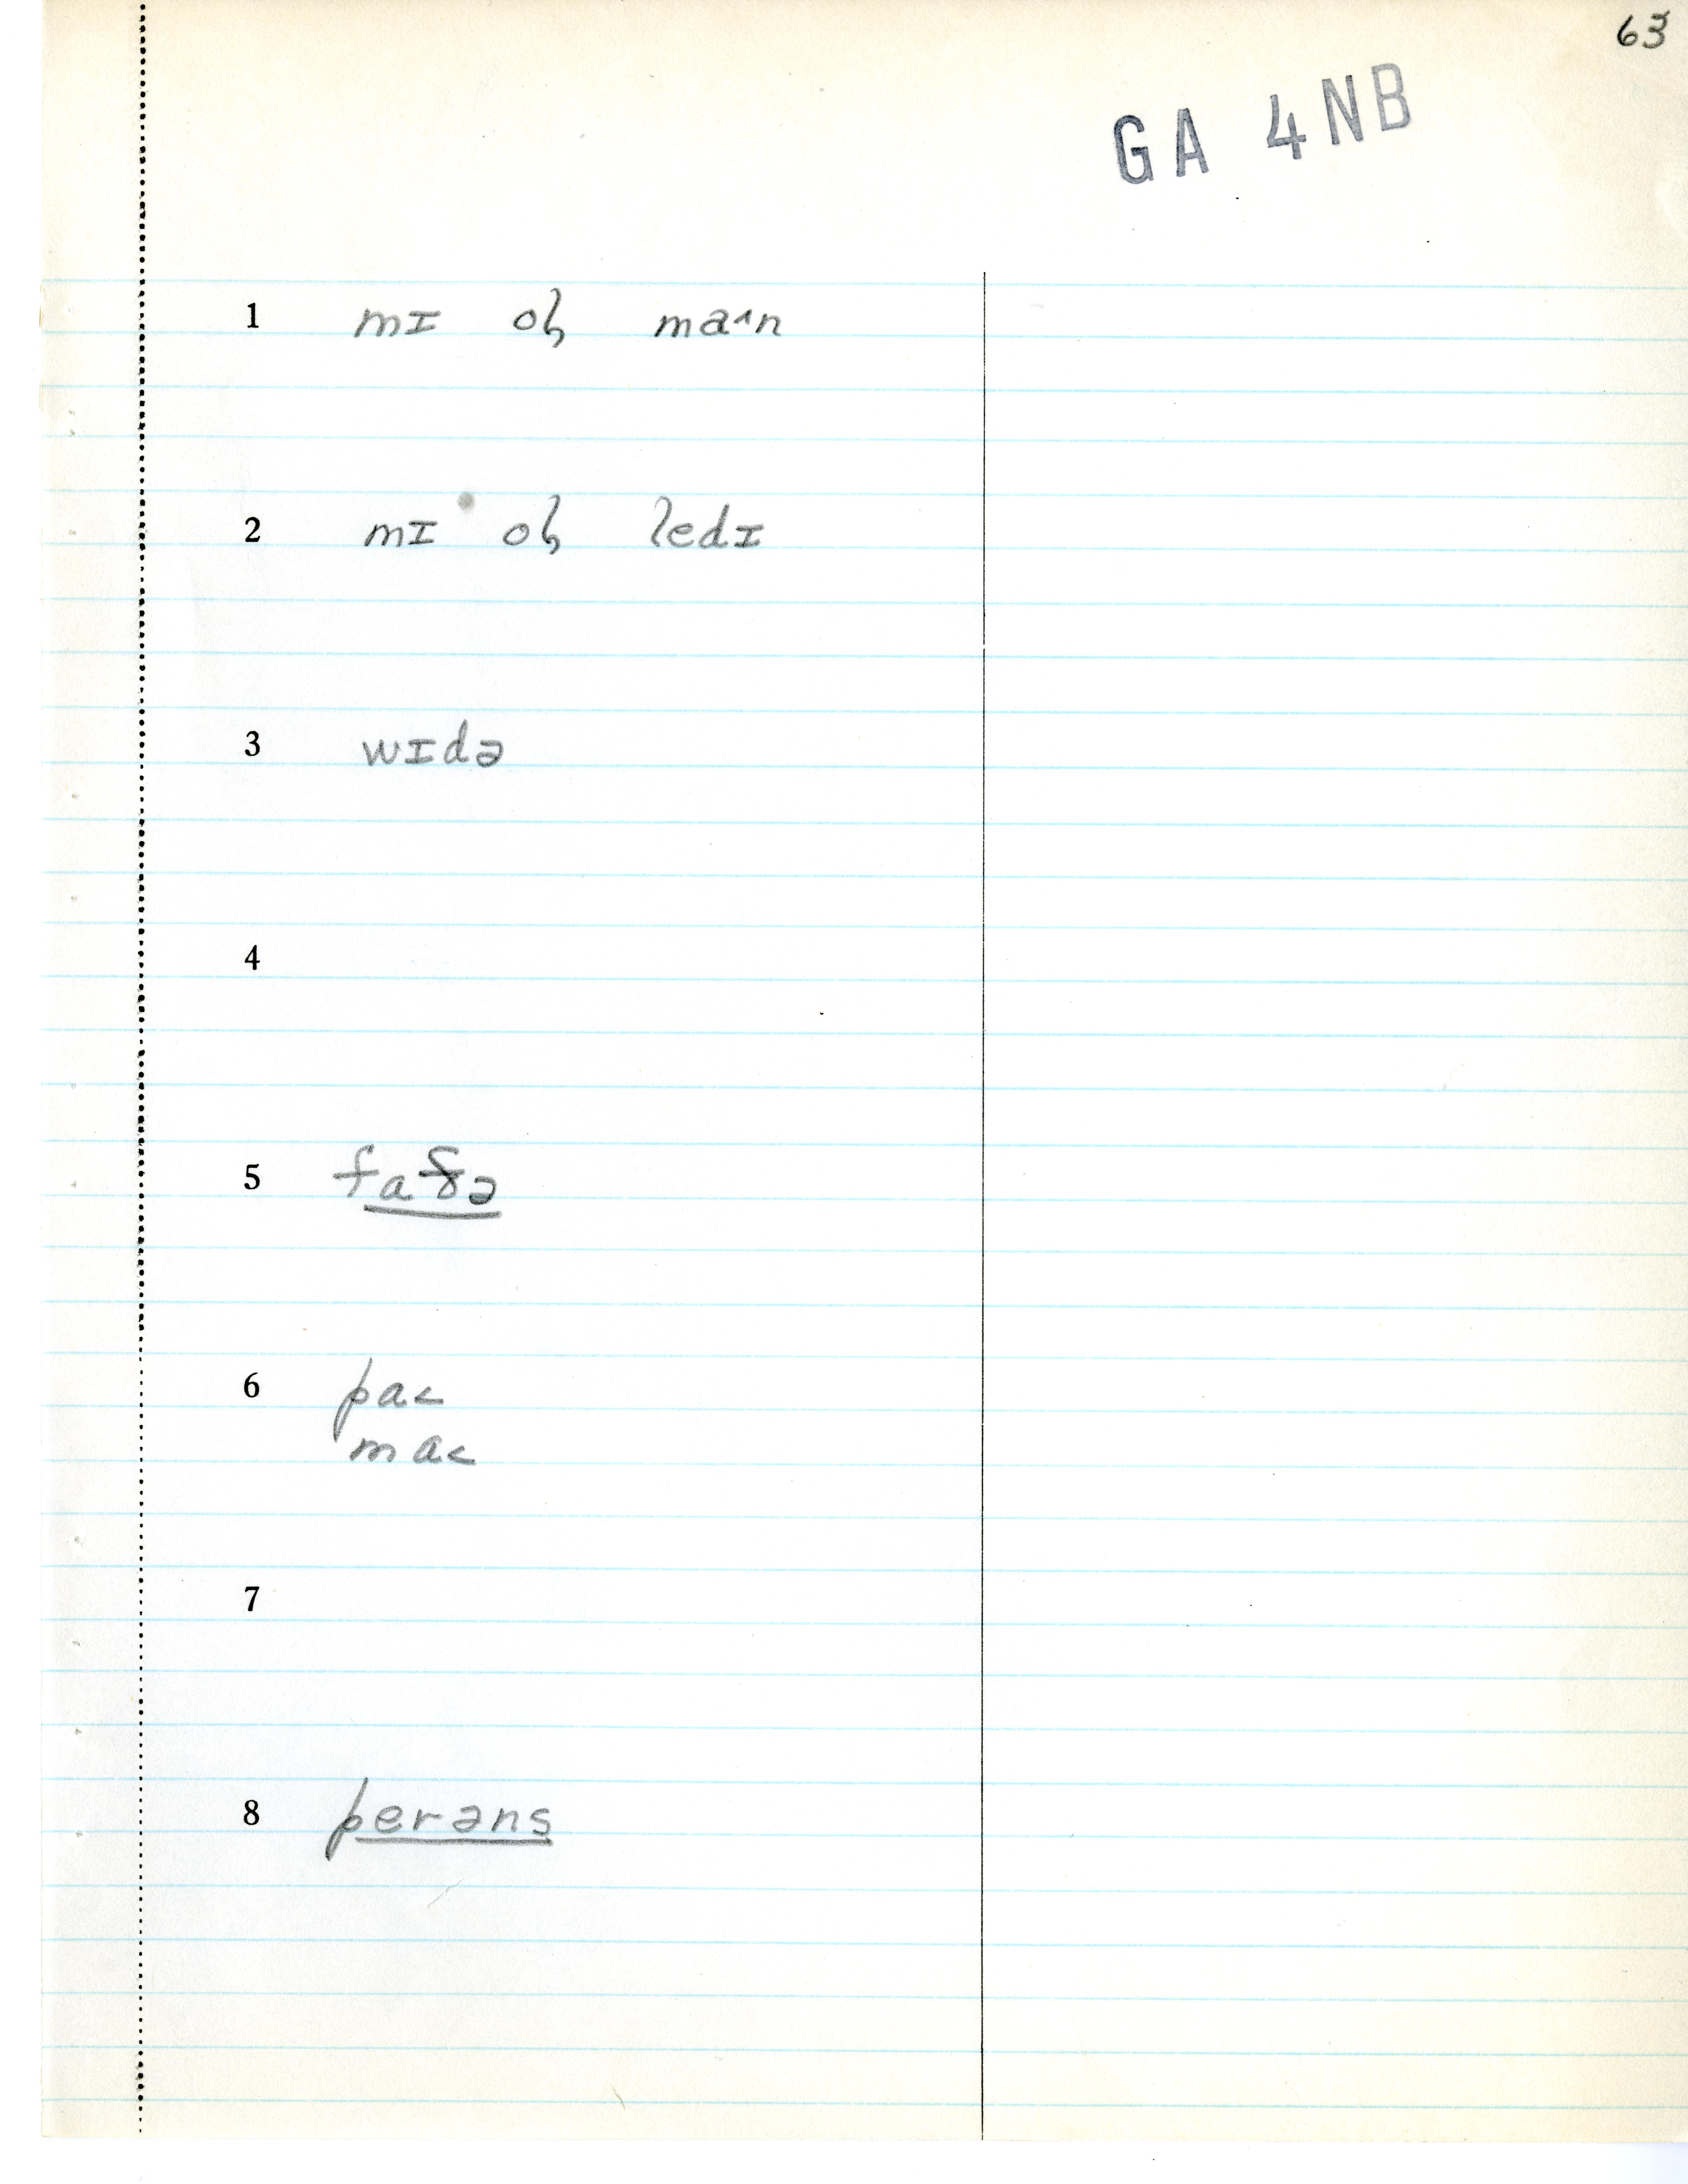 63
GA 4NB
1 mɪ oɫ ma˄n
2 mɪ oɫ ledɪ
3 wɪdə
4
5 fađə
6 pa˂
ma˂
7
8 perəns